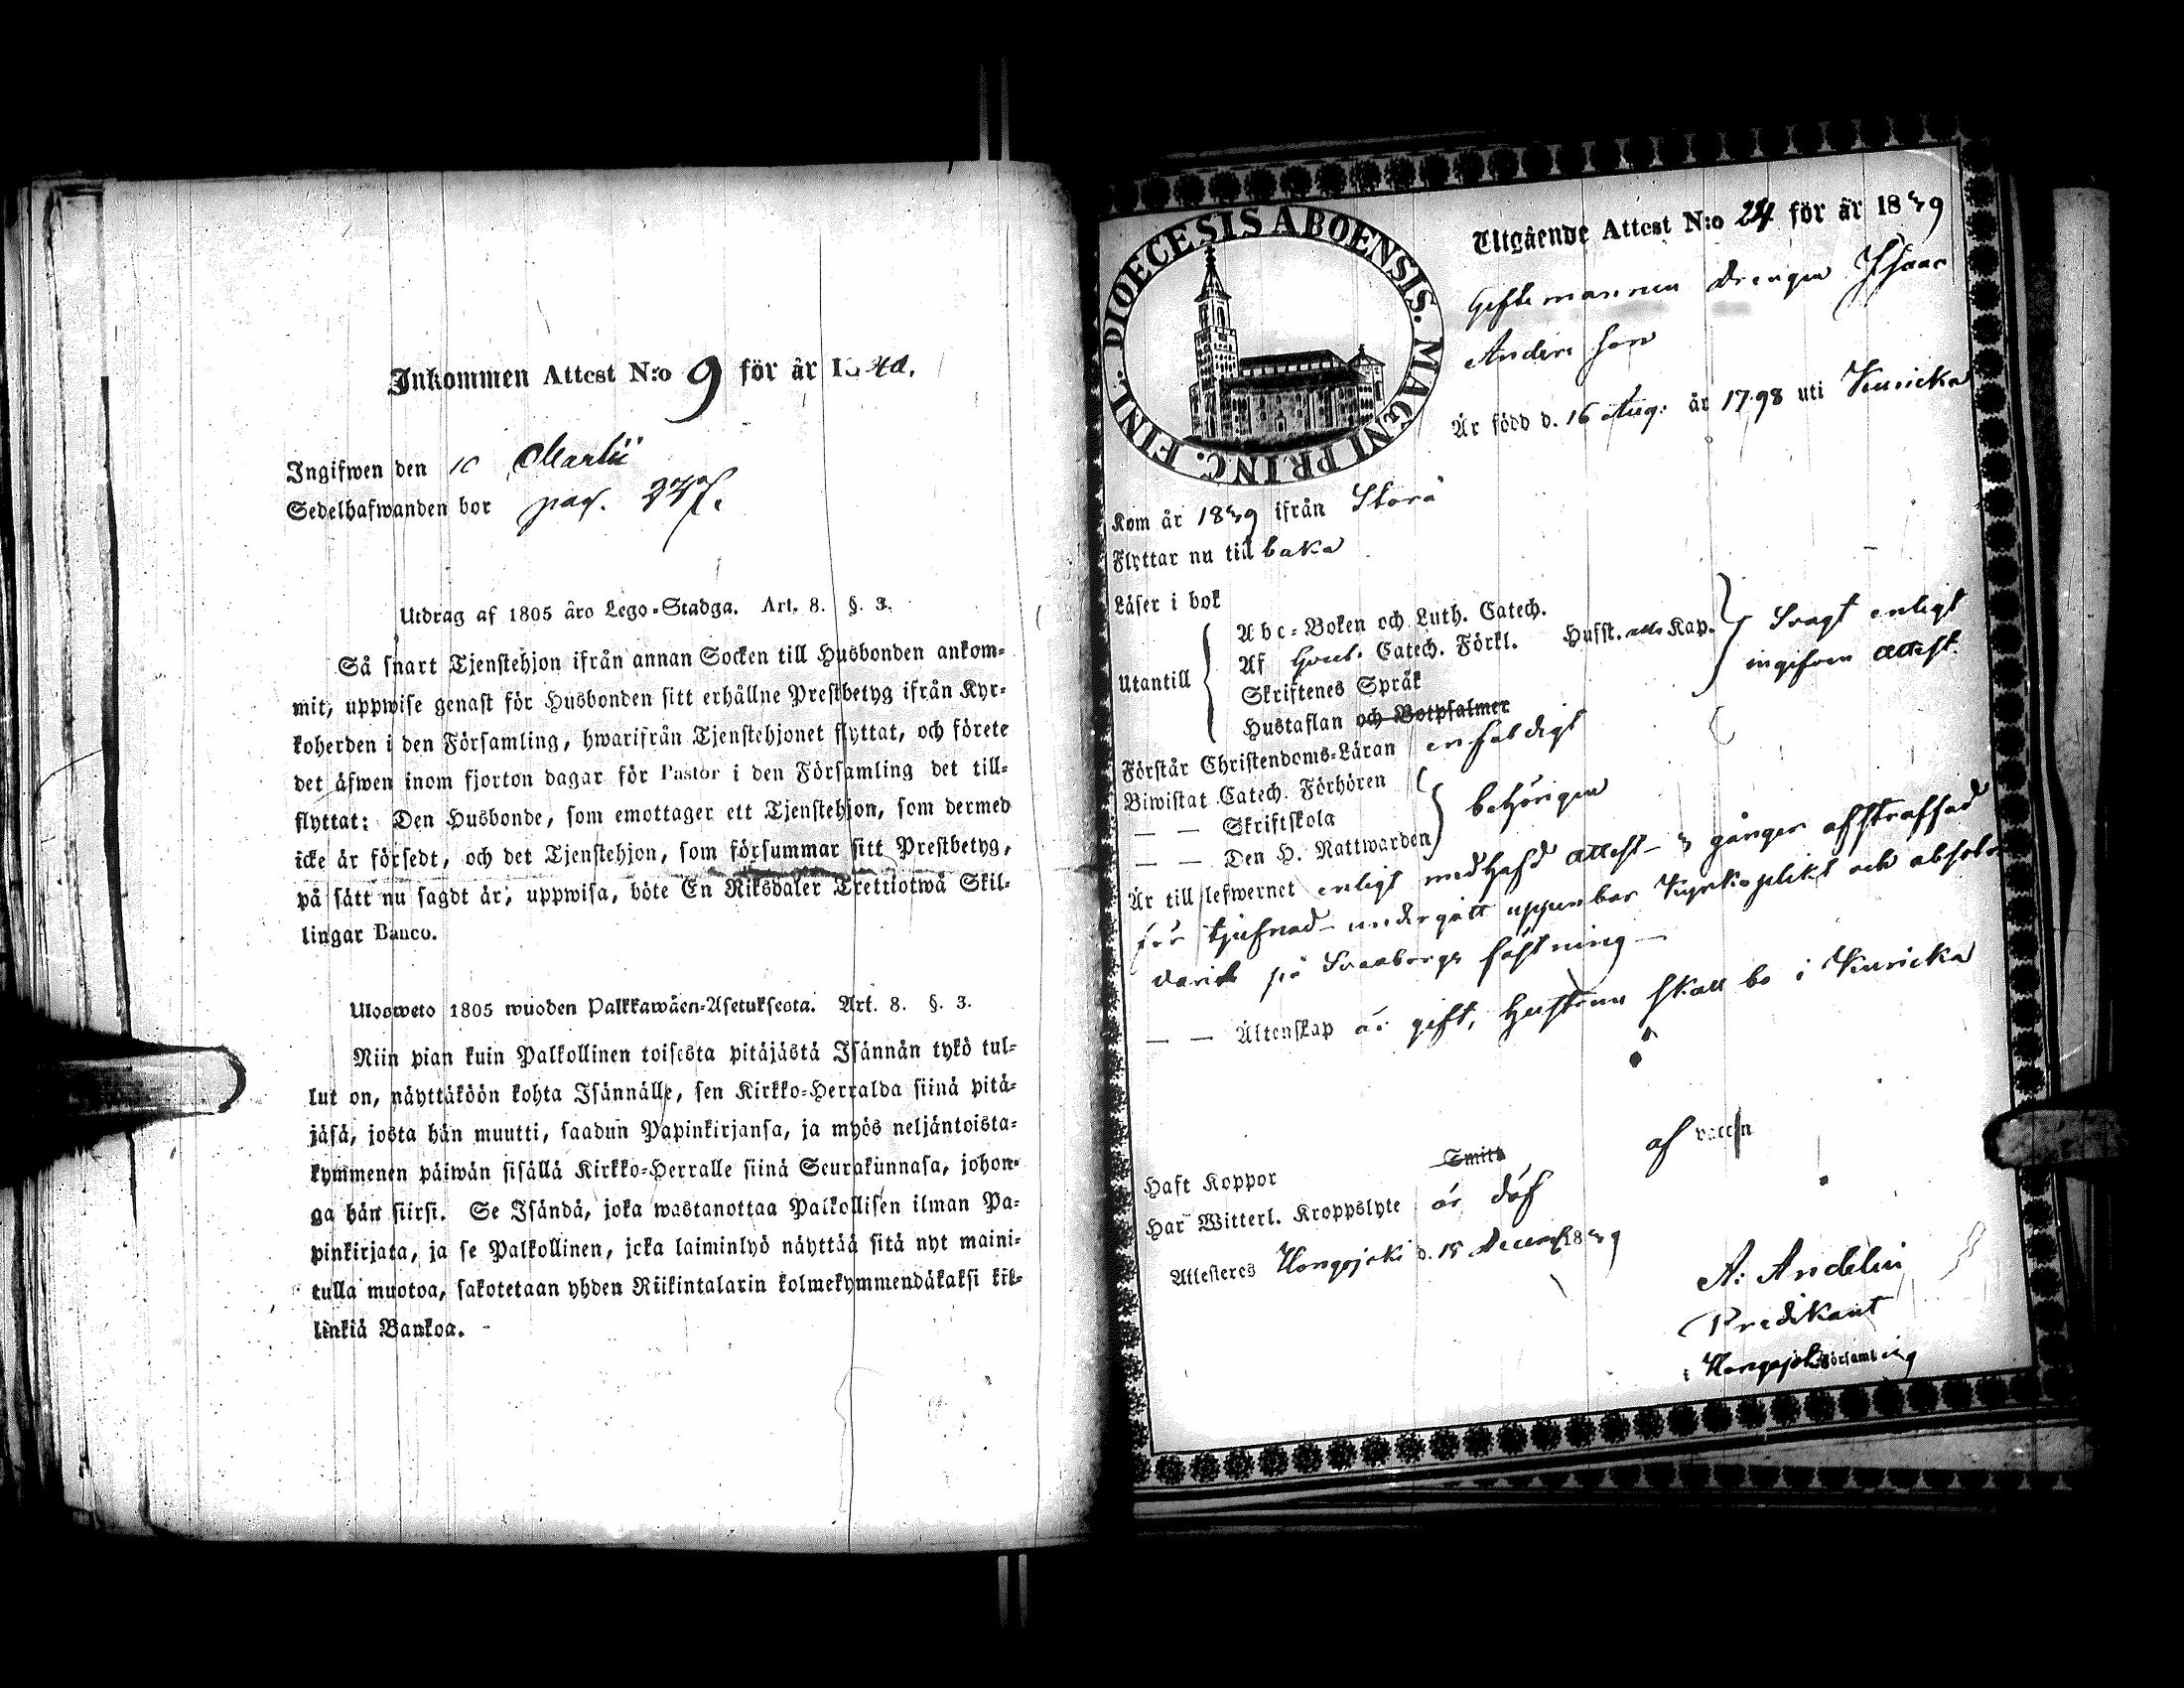 Inkommen Attest N:o 9 för år 1840.
Ingifwen den 10 Martii
Sedelhafwanden bor pag. 247.
Utdrag af 1805 års Lego-Stadga. Art. 8. §. 3.
Så snart Tjenstehjon ifrån annan Socken till Husbonden ankom-
mit, uppwise genast för Husbonden sitt erhållne Prestbetyg ifrån Kyr-
koherden i den Församling, hwarifrån Tjenstehjonet flyttat, och förete
det äfwen inom fjorton dagar för Pastor i den Församling det till-
flyttat: Den Husbonde, som emottager ett Tjenstehjon, som dermed
icke är försedt, och det Tjenstehjon, som försummar sitt Prestbetyg,
på sätt nu sagdt är, uppwisa, böte En Riksdaler Trettiotwå Skil-
lingar Banco.
Ulosweto 1805 wuoden Palkkawäen-Asetuksesta. Art. 8. §. 3.
Niin pian kuin Palkollinen toisesta pitäjästä Isännän tykö tul-
lut on, näyttäköön kohta Isännälle, sen Kirkko-Herralda siinä pitä-
jäsä, josta hän muutti, saadun Papinkirjansa, ja myös neljäntoista-
kymmenen päiwän sisällä Kirkko-Herralle siinä Seurakunnasa, johon-
ga hän siirsi. Se Isändä, joka wastanottaa Palkollisen ilman Pa-
pinkirjata, ja se Palkollinen, joka laiminlyö näyttää sitä nyt maini-
tulla muotoa, sakotetaan yhden Riikintalarin kolmekymmendäkaksi kil-
linkiä Bankoa.
DIOECESIS ABOENSIS. MAGNI PRINC. FINL.
Utgående Attest N:o 24 för år 1839
Gifte mannen Drengen Isaac
Anders son
Är född d. 16 Aug: år 1798 uti Kuricka
Kom år 1839 ifrån Storå
Flyttar nu till baka
Läser i bok
Utantill
Abc-Boken och Luth. Catech.
Af Catech. Förkl. Husst. alla Kap.
Skriftenes Språk
Hustaflan och Botpsalmer
Svagt enligt
ingifven Attest.
Förstår Christendoms-Läran enfaldigt
Biwistat Catech. Förhören
— — Skriftskola
— — Den H. Nattwarden
behörigen
Är till lefwernet enligt medhafd Attest - 3 gånger afstraffad
för tjufnad - undergått uppenbar Kyrkoplikt och absol
på Sveaborgs fästning —
— — Äktenskap är gift, hustrun skall bo i Kuricka
Haft Koppor Smitt af vaccin
Har Witterl. Kroppslyte är döf
Attesteres Hongojoki d. 18 Decemb. 1839
A: Andelin
Predikant
i Hongojoki Församling